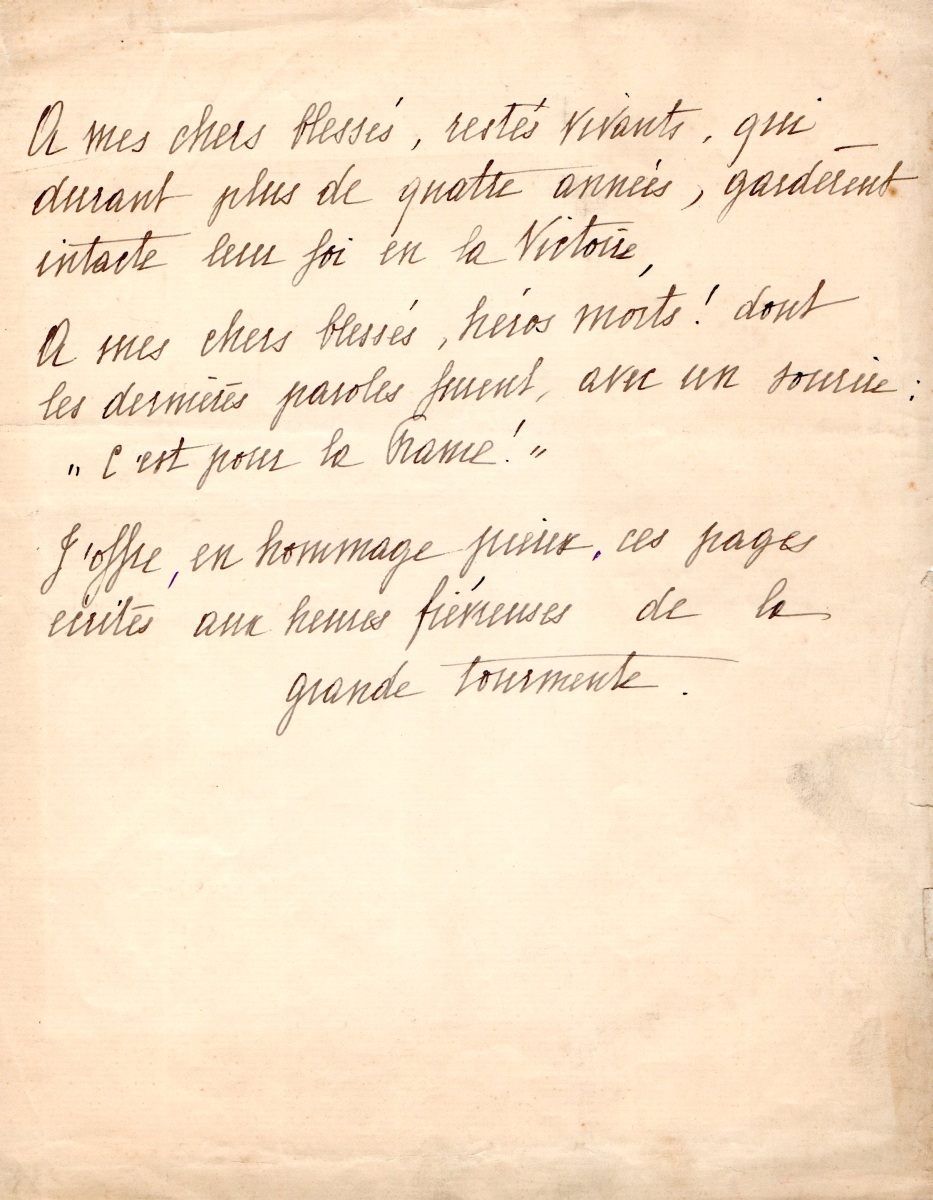 A mes chers blessés, restés vivants, qui
durant plus de quatre années, gardèrent
intacte leur foi en la Victoire,
A mes chers blessés, héros morts! dont
les dernières paroles furent, avec un sourire :
" C'est pour la France! "
J'offre, en hommage pieux, ces pages
écrites aux heures fiévreuses de la
grande tourmente.